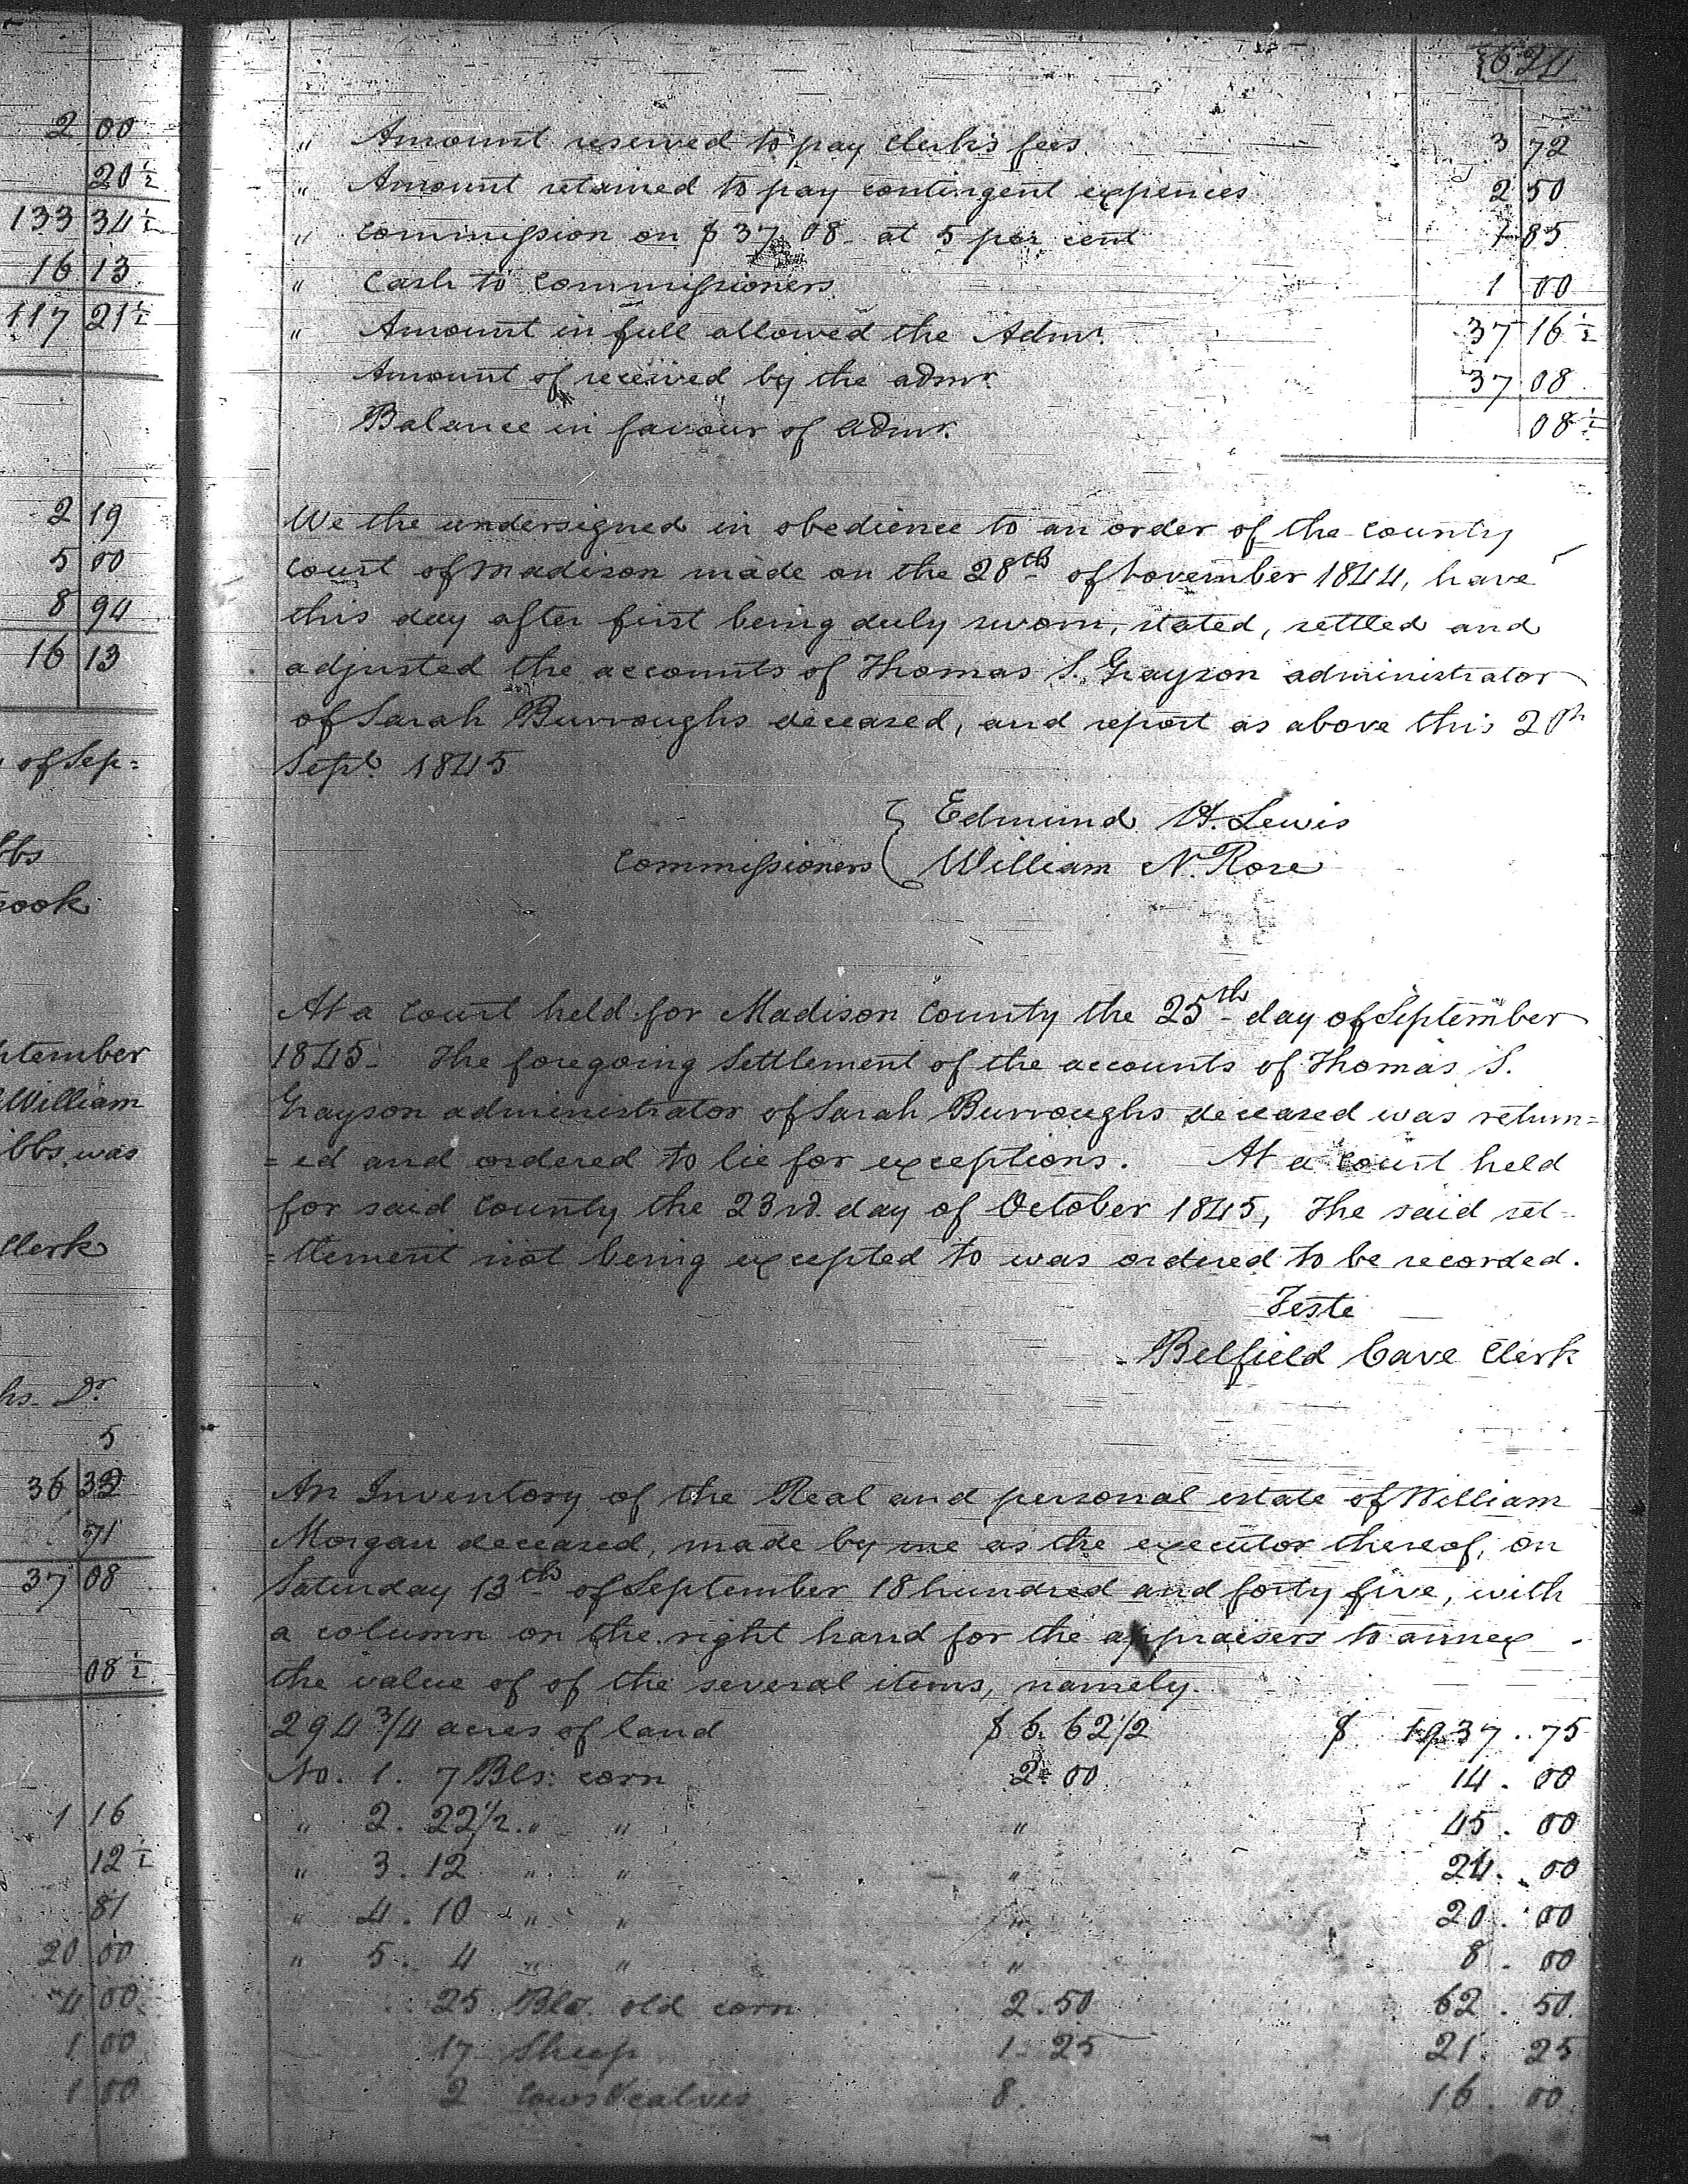 2 00
20 ½
133 34 ½
16 13
117 21 ½
2 19
5 00
8 94
16 13
of Sep=
bbs
rook
ptember
William
ibbs, was
Clerk
hs. Dr
5
36 32
71
37 08
08 ½
1 16
12 ½
81
20 00
4 00
1 00
1 00
624
" Amount reserved to pay Clerk's fees 3 72
" Amount retained to pay contingent expences 2 50
" commission on $37,08 at 5 per cent 1 85
" Cash to Commissioners 1 00
" Amount in full allowed the Admr. 37 16 ½
Amount of received by the admr. 37 08
Balance in favour of admr. 08 ½
We the undersigned in obedience to an order of the county
court of Madison made on the 28th of November 1844, have
this day after first being duly sworn, stated, settled and
adjusted the accounts of Thomas S. Grayson administrator
of Sarah Burroughs deceased, and report as above this
Sept. 1845
Edmund H. Lewis
Commissioners William N. Rose
At a court held for Madison County the 25th day of September
1845. The foregoing Settlement of the accounts of Thomas S.
Grayson administrator of Sarah Burroughs deceased was return=
=ed and ordered to lie for exceptions. At a court held
for said county the 23rd. day of October 1845, The said set-
=tlement not being excepted to was ordered to be recorded.
Teste
Belfield Cave Clerk
An Inventory of the Real and personal estate of William
Morgan deceased, made by me as the executor thereof, on
Saturday 13th of September 18 hundred and forty five, with
a column on the right hand for the appraisers to annex
the value of of the several items, namely.
294 3/4 acres of land $6. 62 1/2 $ 1937 .. 75
No. 1. 7 Bls: corn 2.00 14 . 00
" 2. 22 1/2 " " " 45 . 00
" 3. 12 " " " 24 . 00
" 4. 10 " " " 20 . 00
" 5. 4 " " " 8 . 00
25 Bls. old corn 2.50 62 . 50
17 Sheep 1.25 21 . 25
2 cows & calves 8. 16 . 00